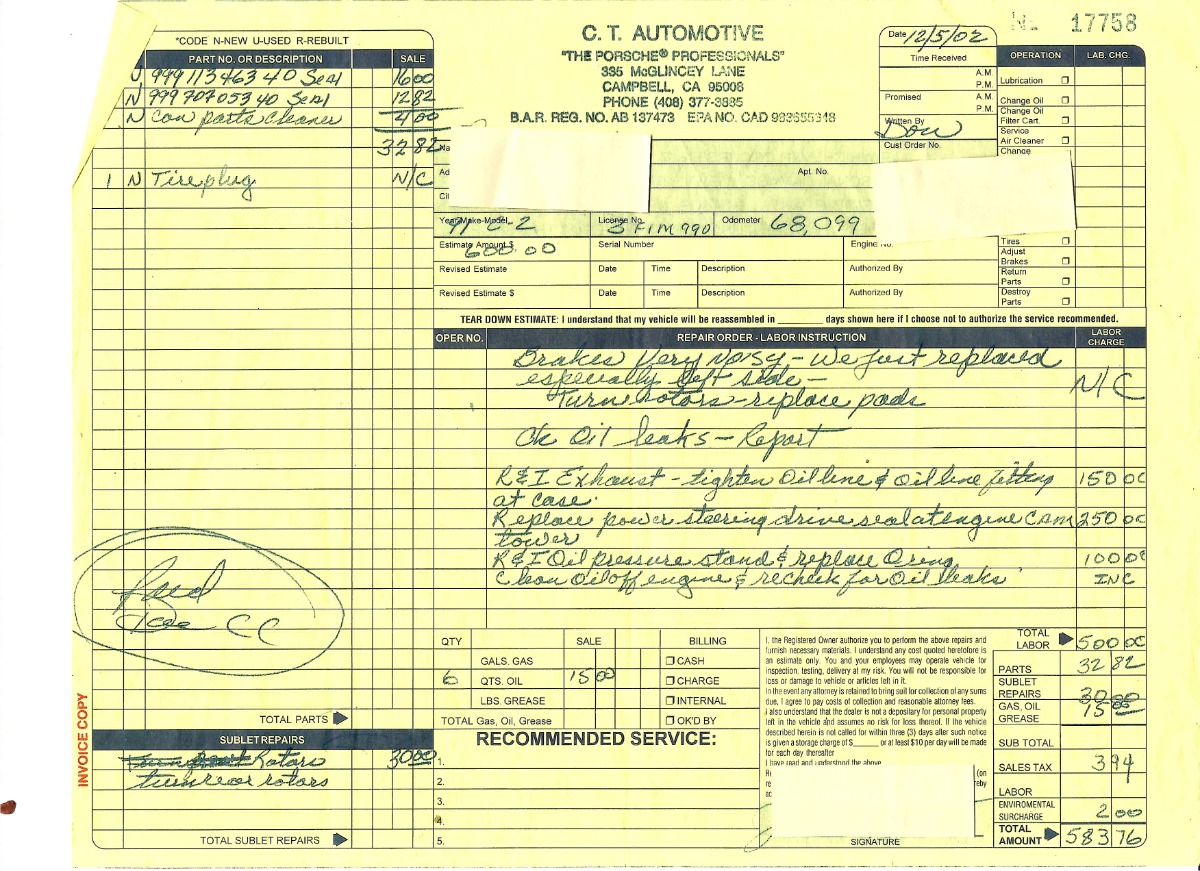 *CODE N-NEW U-USED R-REBUILT
PART NO. OR DESCRIPTION SALE
U 999 113 463 40 Seal 16 00
N 999 707 053 40 Seal 12 82
N Can parts cleaner 4 00
32 82
1 N Tire plug N/C
C.T. AUTOMOTIVE
"THE PORSCHE® PROFESSIONALS"
335 McGLINCEY LANE
CAMPBELL, CA 95008
PHONE (408) 377-3885
B.A.R. REG. NO. AB 137473 EPA NO. CAD 983655348
No 17758
Date 12/5/02
Time Received
A.M.
P.M.
Promised A.M.
P.M.
Written By
Don
Cust Order No.
OPERATION LAB. CHG.
Lubrication
Change Oil
Change Oil
Filter Cart.
Service
Air Cleaner
Change
Tires
Adjust
Brakes
Return
Parts
Destroy
Parts
Na
Ad Apt. No.
Cit
Year-Make-Model 91 C-2 License No. 3FIM990 Odometer 68,099
Estimate Amount $ 600.00 Serial Number Engine No.
Revised Estimate Date Time Description Authorized By
Revised Estimate $ Date Time Description Authorized By
TEAR DOWN ESTIMATE: I understand that my vehicle will be reassembled in ________ days shown here if I choose not to authorize the service recommended.
OPER NO. REPAIR ORDER - LABOR INSTRUCTION LABOR CHARGE
Brakes Very Noisy - We just replaced
especially left side -
Turn rotors - replace pads N/C
Ck Oil leaks - Report
R&I Exhaust - tighten Oil line & oil line fitting 150 00
at case.
Replace power steering drive seal at engine cam 250 00
tower
R&I Oil pressure stand & replace Oring 100 00
Clean Oil off engine & recheck for Oil leaks INC
CC
QTY SALE BILLING
GALS. GAS CASH
6 QTS. OIL 15 00 CHARGE
LBS. GREASE INTERNAL
TOTAL Gas, Oil, Grease OK'D BY
TOTAL PARTS
SUBLET REPAIRS
Rotors 30 00
turn rear rotors
TOTAL SUBLET REPAIRS
INVOICE COPY
RECOMMENDED SERVICE:
1.
2.
3.
4.
5.
I, the Registered Owner authorize you to perform the above repairs and
furnish necessary materials. I understand any cost quoted heretofore is
an estimate only. You and your employees may operate vehicle for
inspection, testing, delivery at my risk. You will not be responsible for
loss or damage to vehicle or articles left in it.
In the event any attorney is retained to bring suit for collection of any sums
due, I agree to pay costs of collection and reasonable attorney fees.
I also understand that the dealer is not a depositary for personal property
left in the vehicle and assumes no risk for loss thereof. If the vehicle
described herein is not called for within three (3) days after such notice
is given a storage charge of $______ or at least $10 per day will be made
for each day thereafter
I have read and understood the above.
SIGNATURE
TOTAL LABOR 500 00
PARTS 32 82
SUBLET REPAIRS 30 00
GAS, OIL GREASE 15 00
SUB TOTAL
SALES TAX 3 94
LABOR
ENVIROMENTAL SURCHARGE 2 00
TOTAL AMOUNT 583 76